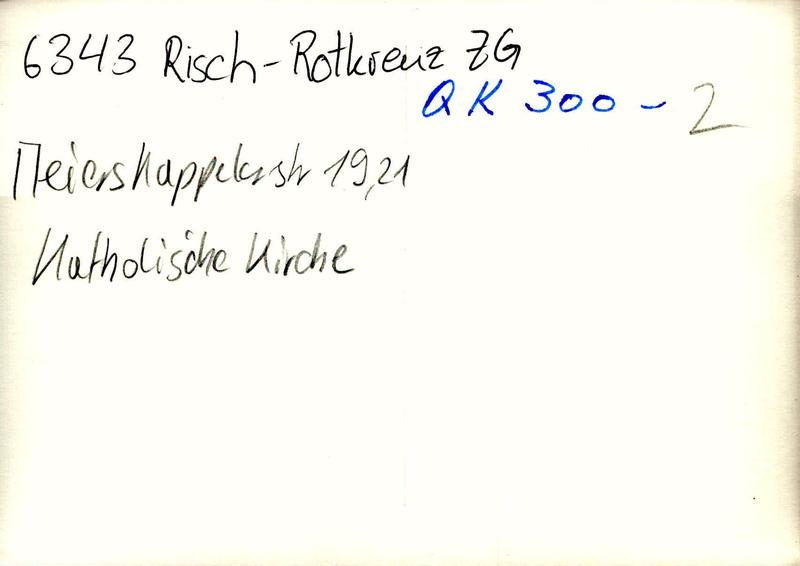 6343 Risch-Rotkreuz ZG
QK 300-2
Meierskappelerstr 19,21
Katholische Kirche